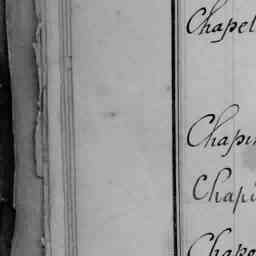 Chapel
Chapin
Chapi
Chapo